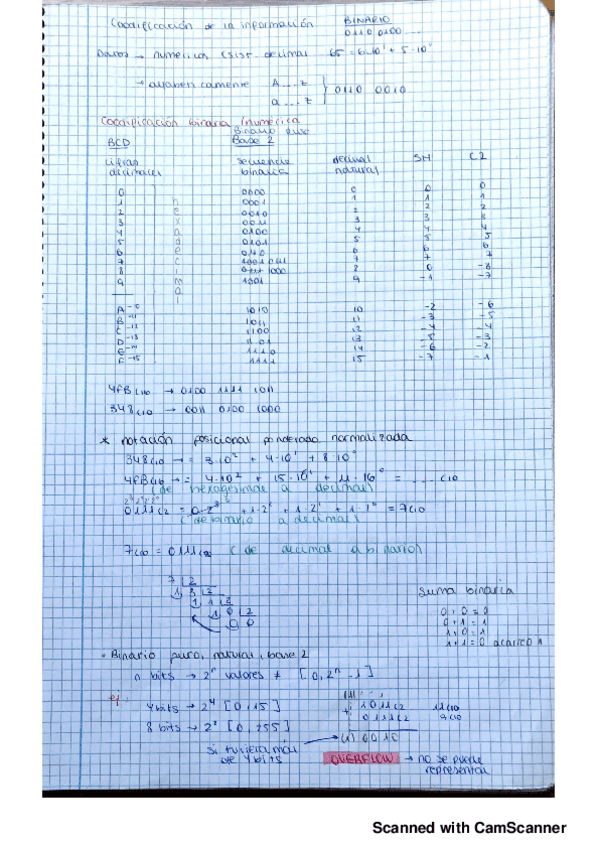 Codificación de la información BINARIO
0110 0100 ...
Datos → numéricos (sist. decimal 65 = 6·10¹ + 5·10⁰
→ alfabéticamente A ... Z
a ... z } 0110 0010
Codificación binaria (numérica
BCD Binario puro
Base 2
cifras decimales secuencia binaria decimal natural SM C2
hexadecimal
0 0000 0 0 0
1 0001 1 1 1
2 0010 2 2 2
3 0011 3 3 3
4 0100 4 4 4
5 0101 5 5 5
6 0110 6 6 6
7 0111 7 7 7
8 1000 8 0 -8
9 1001 9 -1 -7
A 1010 10 -2 -6
B -11 1011 11 -3 -5
C -12 1100 12 -4 -4
D -13 1101 13 -5 -3
E -14 1110 14 -6 -2
F -15 1111 15 -7 -1
4FB(10 → 0100 1111 1011
348(10 → 0011 0100 1000
* notación posicional ponderada normalizada
348(10 → = 3·10² + 4·10¹ + 8·10⁰
4FB(16 → = 4·10² + 15·10¹ + 11·16⁰ = ... (10
(de hexagesimal a decimal)
0111(2 = 0·2³ + 1·2² + 1·2¹ + 1·1⁰ = 7(10
(de binario a decimal)
7(10 = 0111(2 (de decimal a binario)
7 2
1 3 2
1 1 2
1 0 2
0 0
Suma binaria
0 + 0 = 0
0 + 1 = 1
1 + 0 = 1
1 + 1 = 0 acarreo 1
- Binario puro, natural, base 2
n bits → 2ⁿ valores ≠ [0, 2ⁿ - 1]
ej:
4 bits → 2⁴ [0, 15]
8 bits → 2⁸ [0, 255]
1011(2 11(10
+ 0111(2
si tuviera más de 4 bits
OVERFLOW → no se puede representar
Scanned with CamScanner